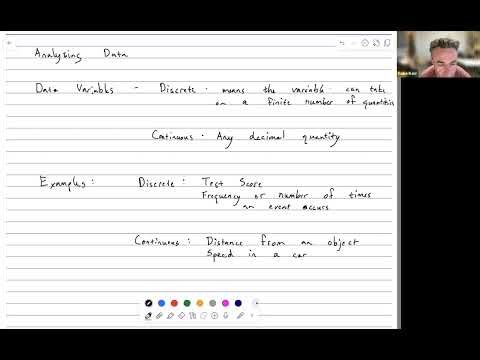 Analyzing Data
Data Variables - Discrete · means the variable can take
on a finite number of quantities
Continuous · Any decimal quantity
Examples: Discrete: Test Score
Frequency or number of times
an event occurs
Continuous: Distance from an object
Speed in a car